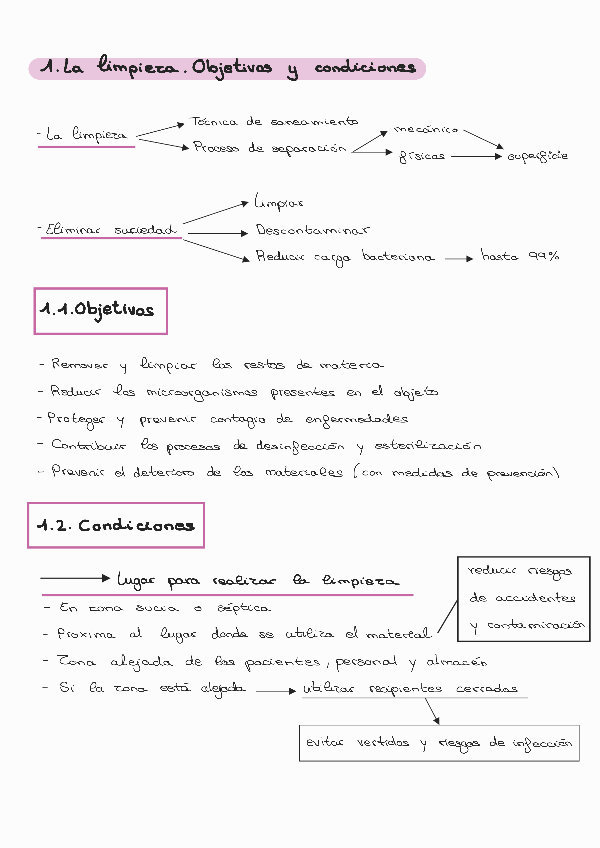 1. La limpieza. Objetivos y condiciones
Técnica de saneamiento
- La limpieza
mecánico
Proceso de separación
físicas
superficie
Limpiar
- Eliminar suciedad
Descontaminar
Reducir carga bacteriana
hasta 99%
1.1. Objetivos
- Remover y limpiar los restos de materia
- Reducir los microorganismos presentes en el objeto
- Proteger y prevenir contagio de enfermedades
- Contribuir los procesos de desinfección y esterilización
- Prevenir el deterioro de los materiales (con medidas de prevención)
1.2. Condiciones
Lugar para realizar la limpieza
reducir riesgos
de accidentes
y contaminación
- En zona sucia o séptica
- Próxima al lugar donde se utiliza el material
- Zona alejada de los pacientes, personal y almacén
- Si la zona está alejada
utilizar recipientes cerrados
evitar vertidos y riesgos de infección